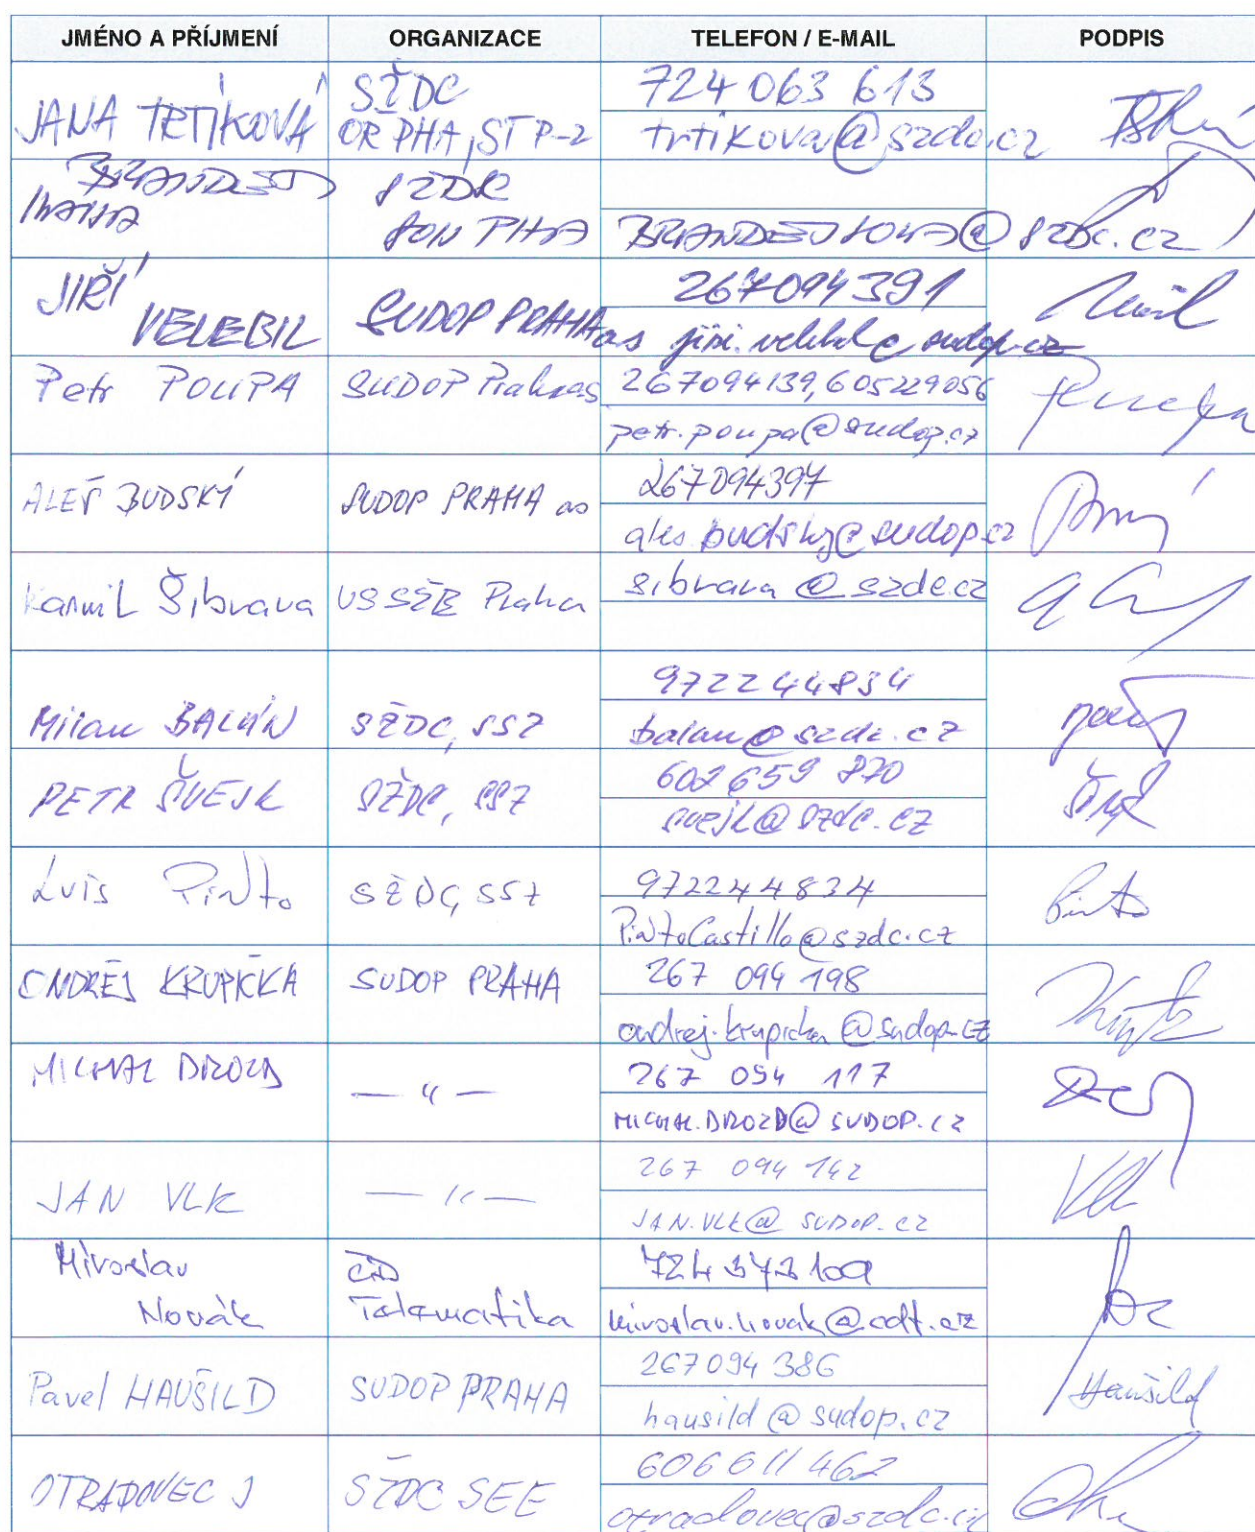 JMÉNO A PŘÍJMENÍ ORGANIZACE TELEFON / E-MAIL PODPIS
JANA TRTÍKOVÁ SŽDC 724 063 613
OŘ PHA, ST P-2 trtikova@szdc.cz
SŽDC
SON PHA BRANDEJSOVA@szdc.cz
JIŘÍ 267094391
VELEBIL SUDOP PRAHA as jiri.velebil@sudop.cz
Petr POUPA SUDOP Praha as 267094139, 605229056
petr.poupa@sudop.cz
ALEŠ BUDSKÝ SUDOP PRAHA as 267094397
ales.budsky@sudop.cz
Kamil Šibrava Praha sibrava@szdc.cz
Milan BALÁN SŽDC, SSZ 972244834
balan@szdc.cz
PETR ŠVEJK SŽDC, SSZ 602 659 870
svejk@szdc.cz
Luis Pinto SŽDC, SSZ 972244834
PintoCastillo@szdc.cz
ONDŘEJ KRUPIČKA SUDOP PRAHA 267 094 198
ondrej.krupicka@sudop.cz
MICHAL DROZD — " — 267 094 117
MICHAL.DROZD@SUDOP.CZ
JAN VLK — " — 267 094 142
JAN.VLK@SUDOP.CZ
Miroslav ČD
Novák Telematika miroslav.novak@cdt.cz
Pavel HAUŠILD SUDOP PRAHA 267094 386 Haušild
hausild@sudop.cz
OTRADOVEC J SŽDC SEE 606 611 462
otradovec@szdc.cz